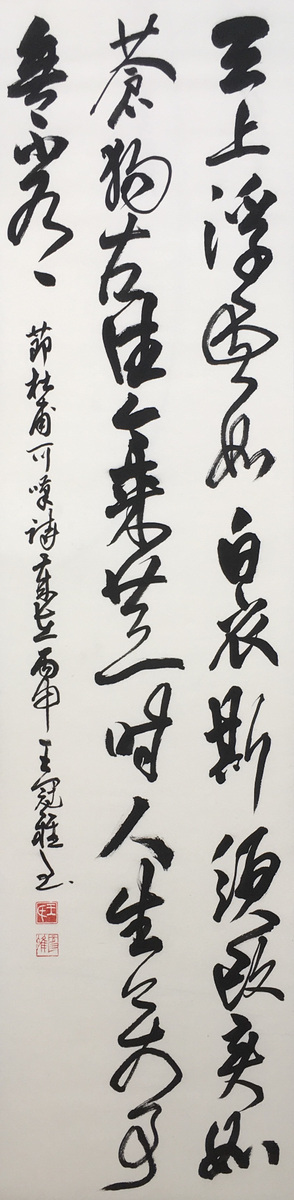 天上浮雲如白衣斯須改變如
蒼狗古往今來共一时人生万事
無不有
節杜甫可嘆詩歲在丙申王冠雅书